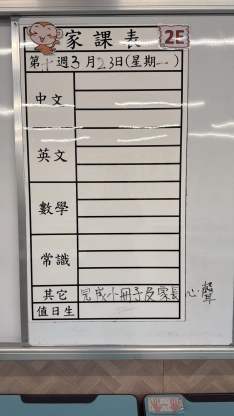 家課表 2E
第十週3月23日(星期一)
中文
英文
數學
常識
其它 完成小冊子及家長心聲
值日生